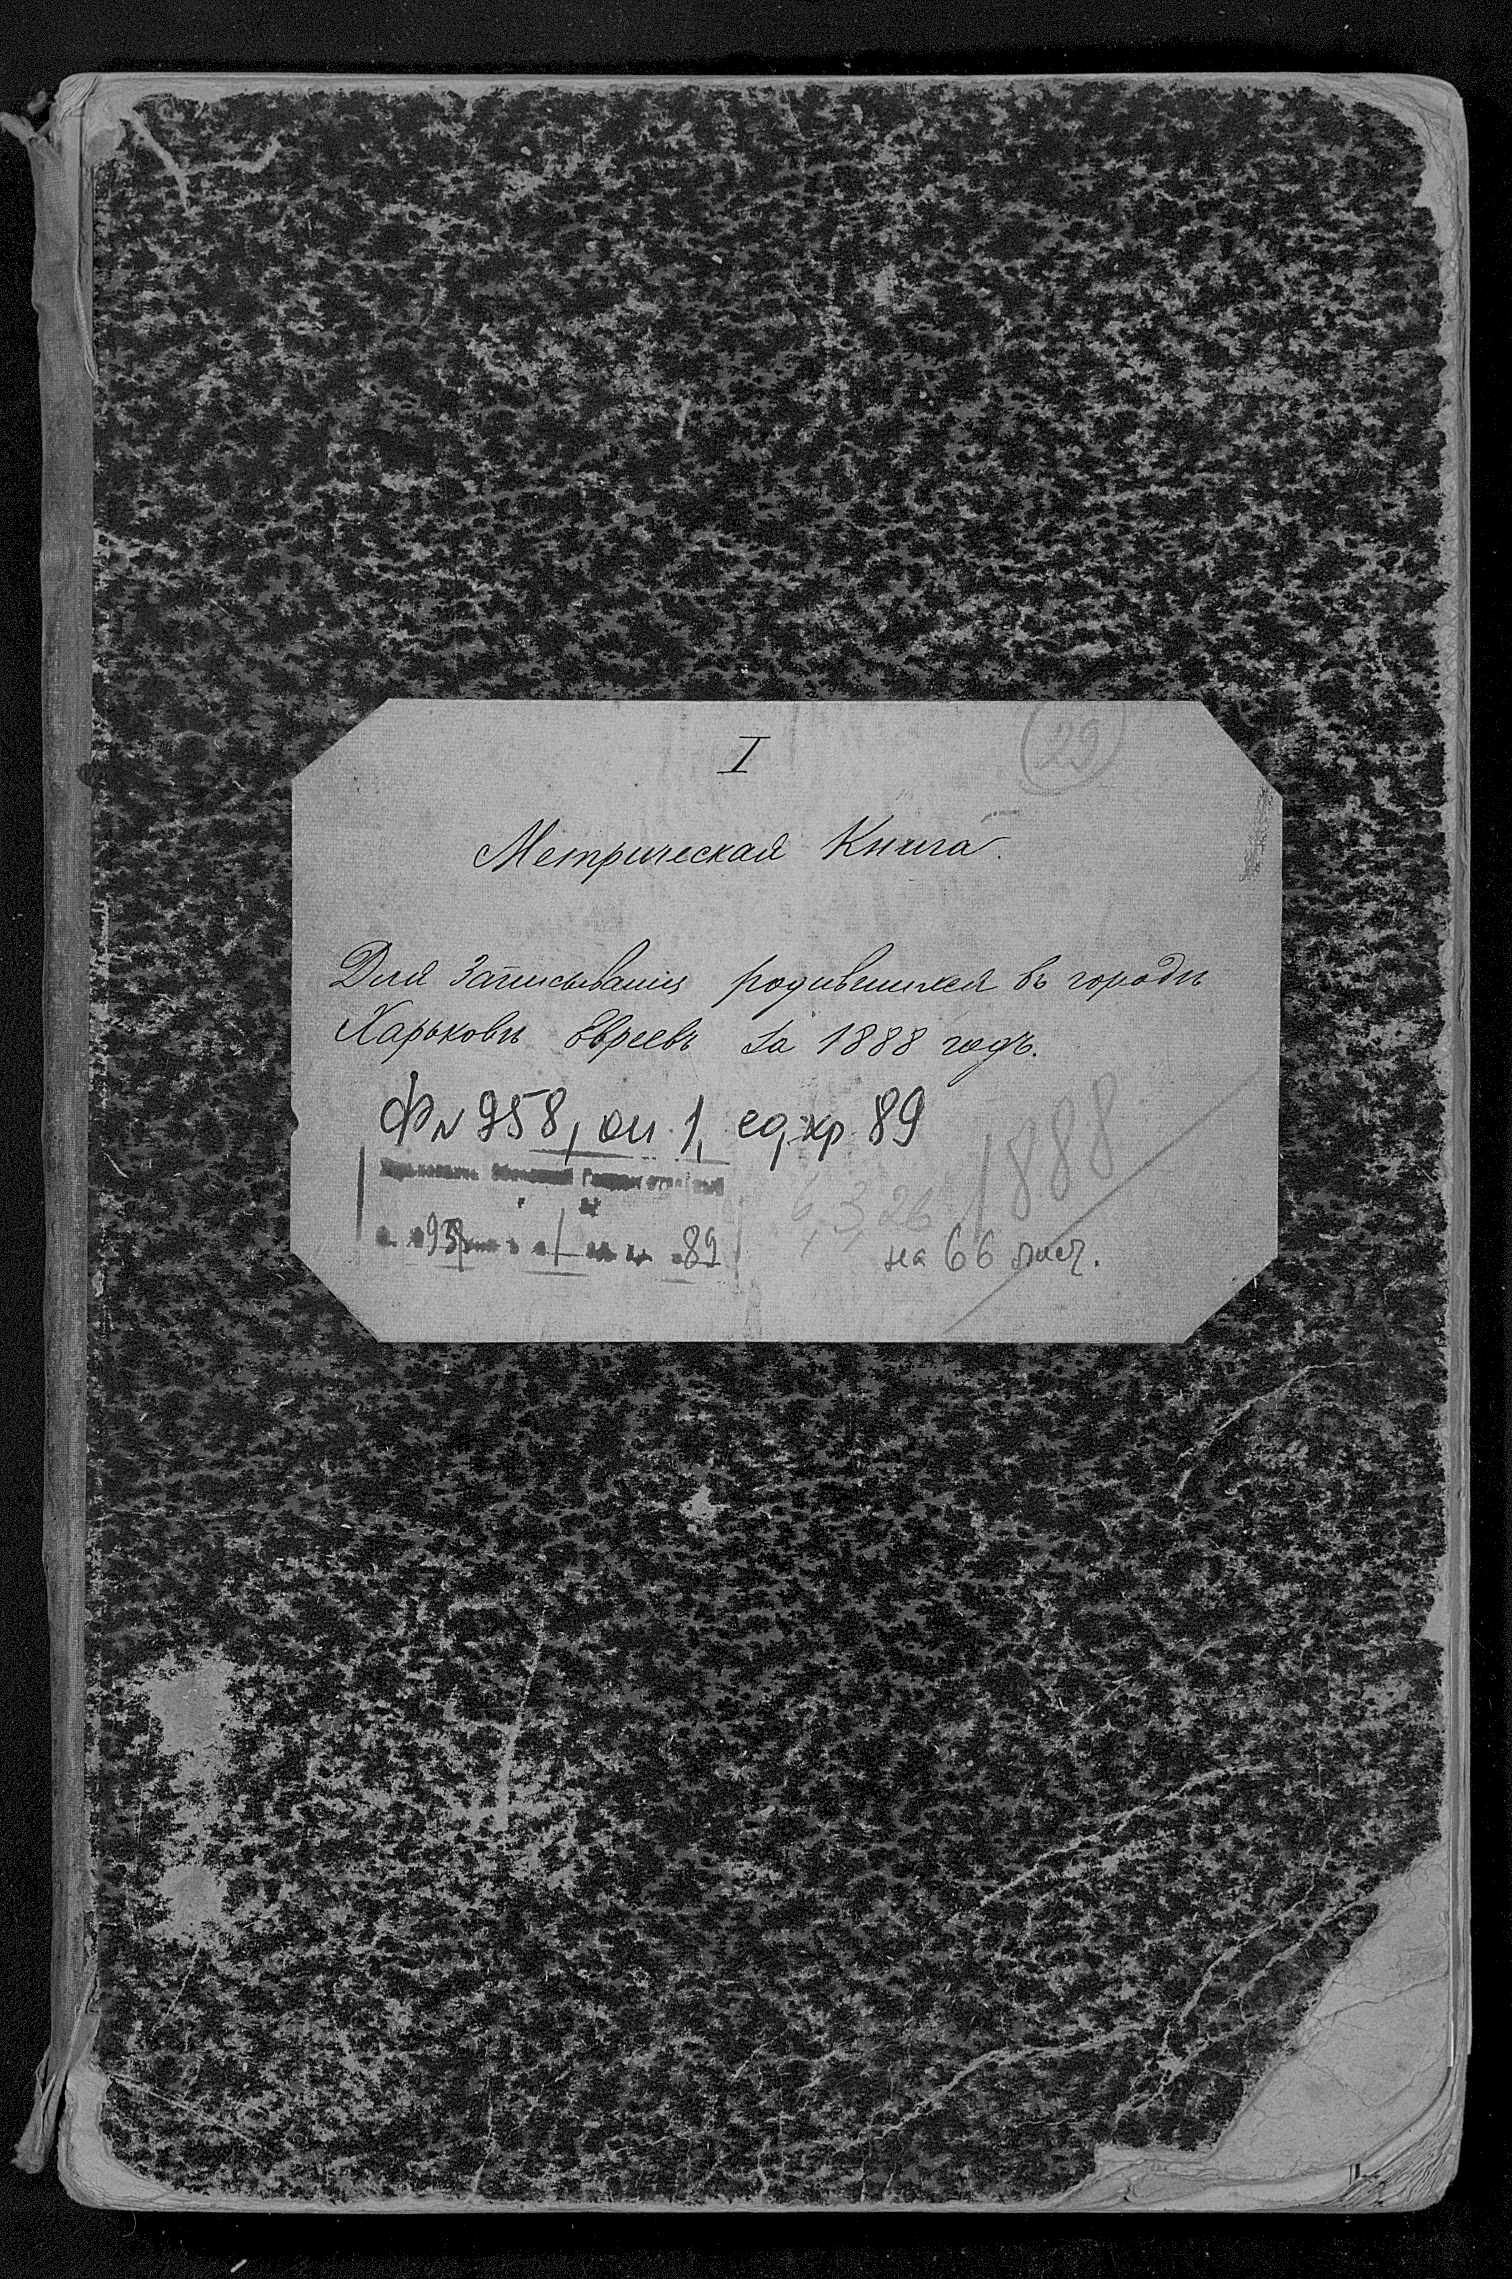 I
29
Метрическая Книга.
Для записыванiя родившихся въ городѣ
Харьковѣ Евреевъ за 1888 годъ.
Ф № 958, оп. 1, ед, хр 89
1888
Харьковский Областной Государственный
958 1 89
6, 3, 26
на 66 лист.